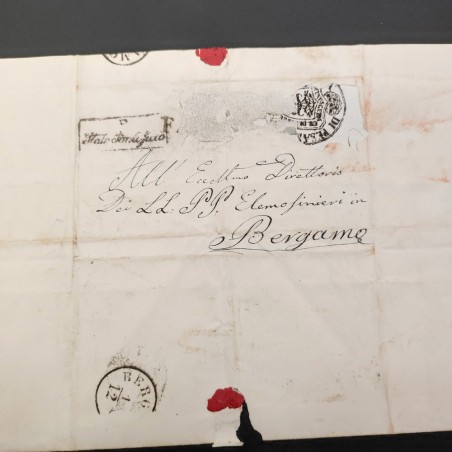 P
Stato Pontificio
DI PESA
All' Ecclmo Direttorio
Dei LL. PP. Elemosinieri in
Bergamo
BERG
12